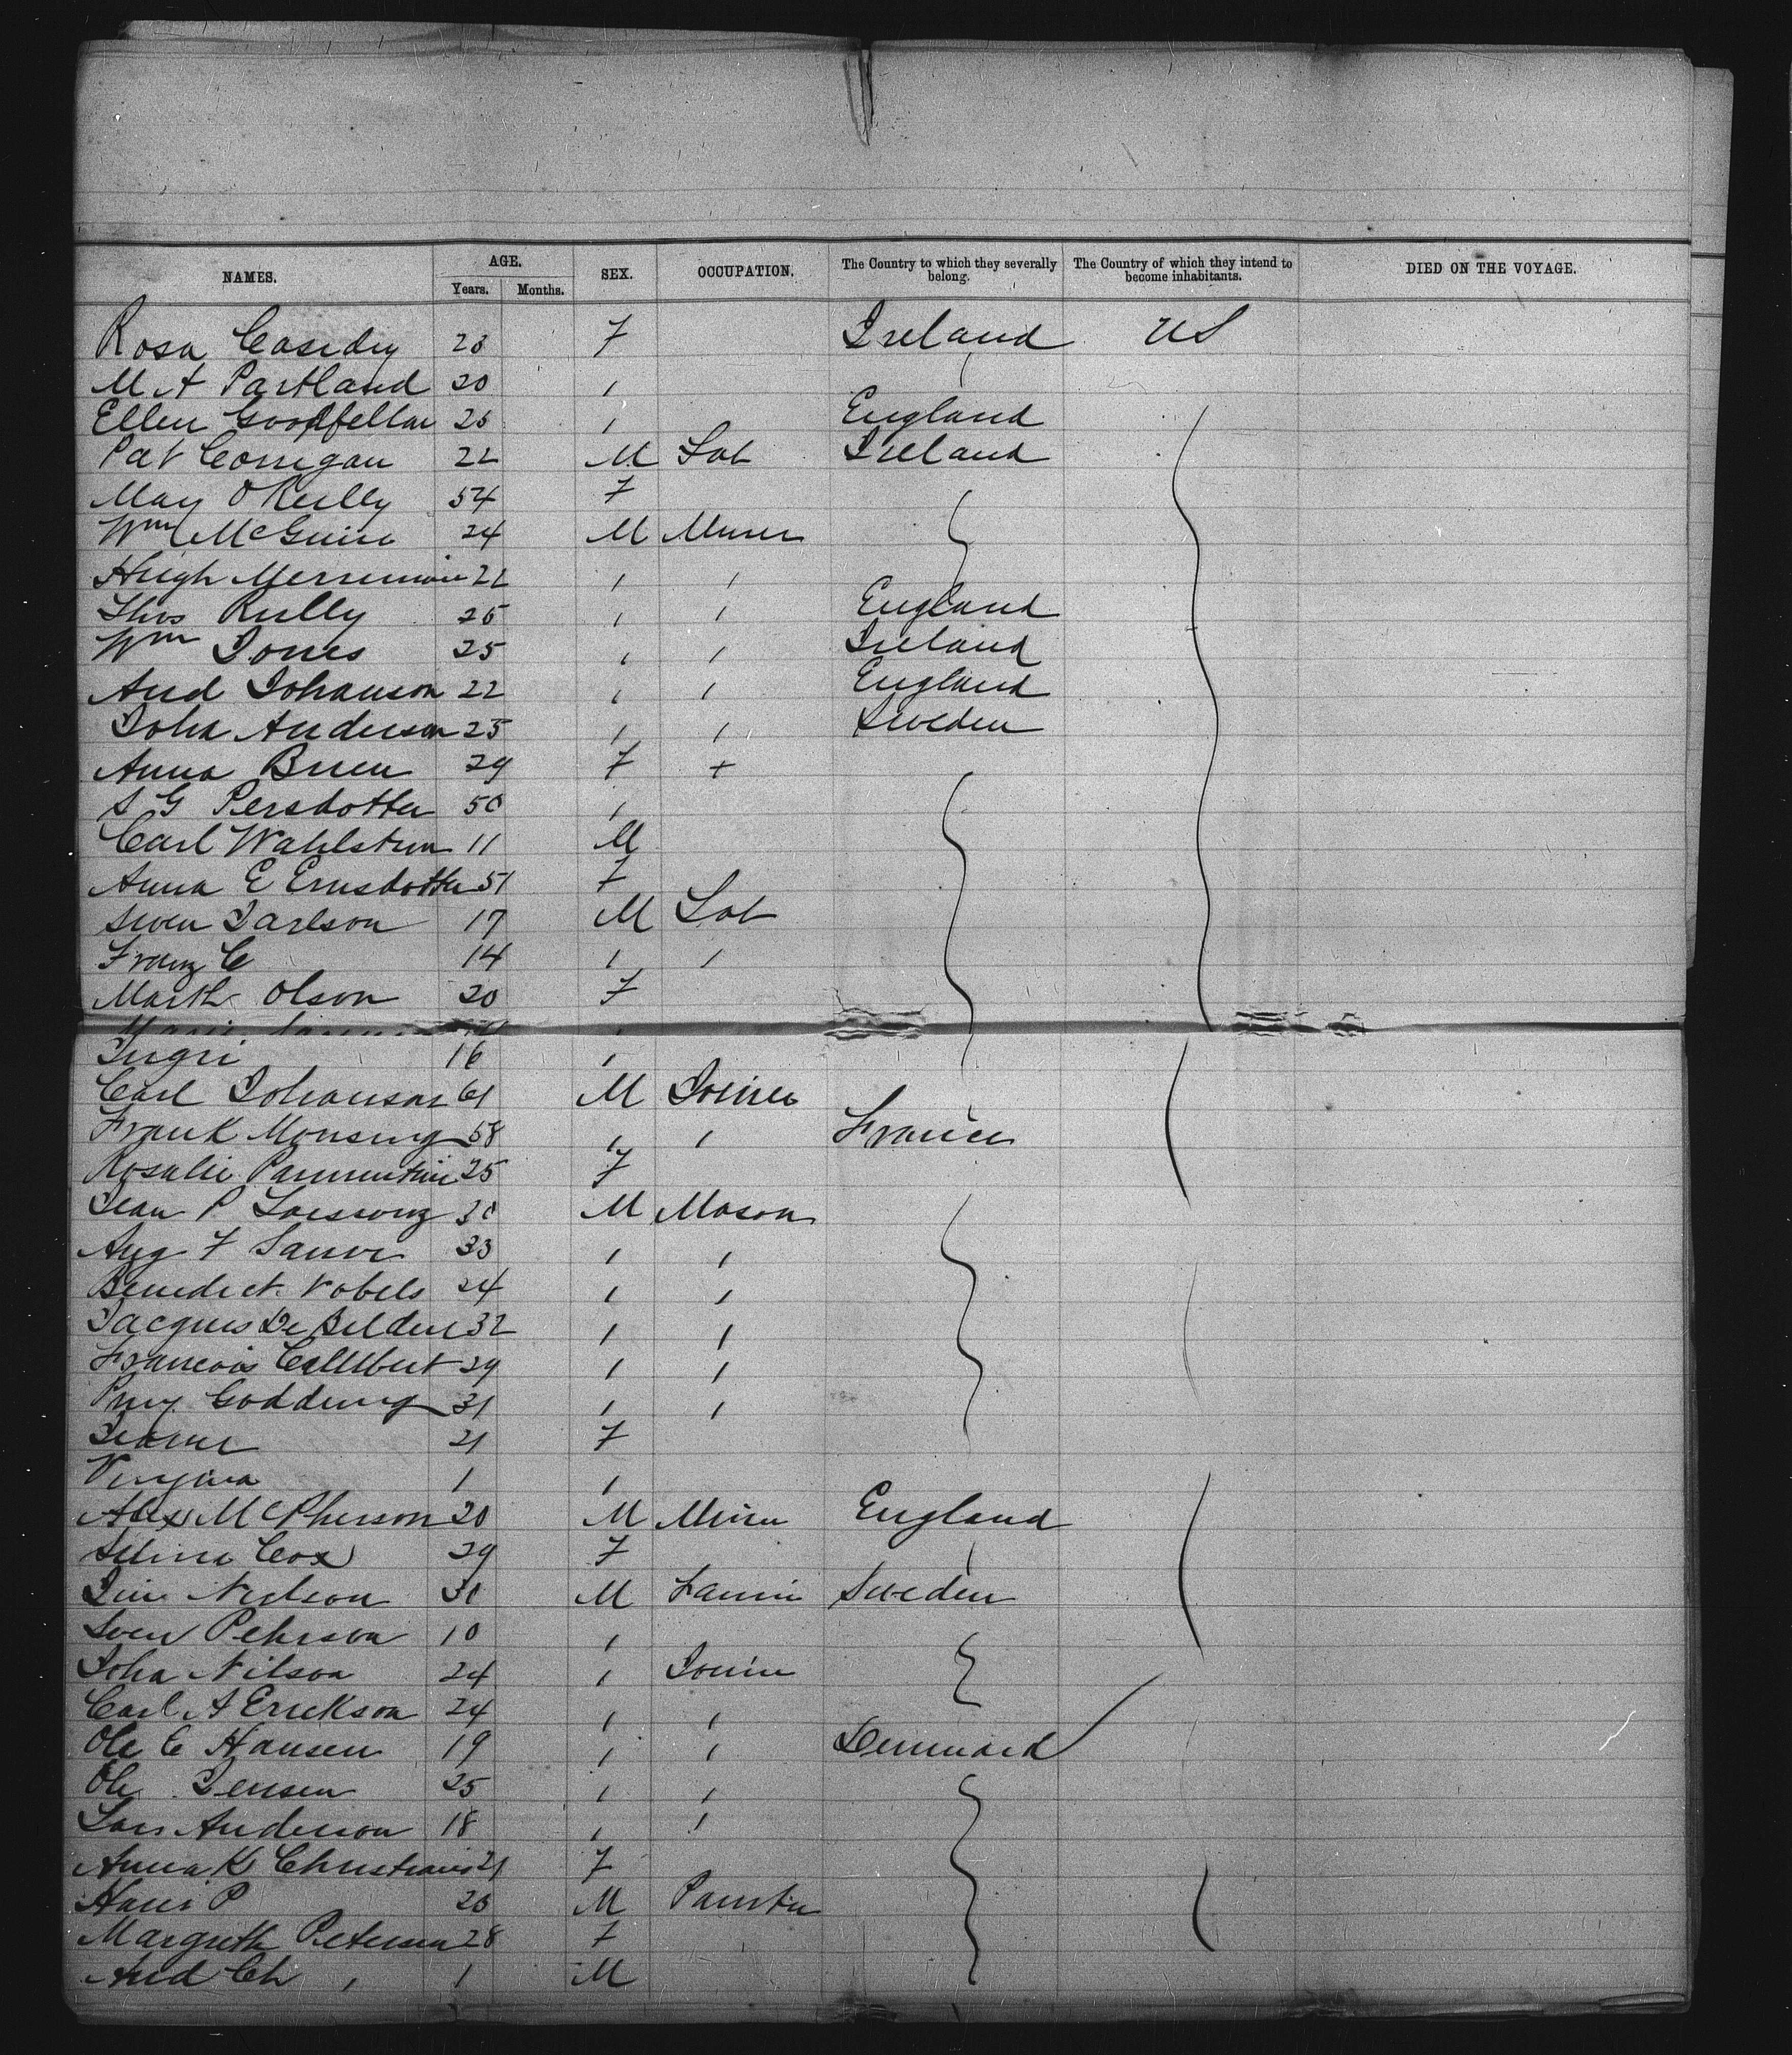 NAMES. AGE. SEX. OCCUPATION. The Country to which they severally belong. The Country of which they intend to become inhabitants. DIED ON THE VOYAGE.
Years. Months.
Rosa Casidy 23 F Ireland US
M A Partland 20 "
Ellen Goodfellow 25 " England
Pat Corrigan 22 M Lab Ireland
Mary O'Reilly 54 F
Wm McGuire 24 M Miner
Hugh Merriman 22 " "
Thos Reilly 25 " " England
Wm Jones 25 " " Ireland
And Johanson 22 " " England
John Anderson 25 " " Sweden
Anna Bruen 29 F +
S G Persdotter 50 "
Carl Wahlstrom 11 M
Anna E Ernsdotter 51 F
Swen Jarlson 17 M Lab
Franz C 14 " "
Marth Olson 20 F
Marie
Ingri 16 "
Carl Johanson 61 M Joiner
Frank Monseng 58 " " France
Rosalie 25 F
Jean P 30 M Mason
Aug F Sauve 33 " "
Benedict Nobels 24 " "
Jacques De Belder 32 " "
Francois Callibert 29 " "
Godding 31 " "
Jeanne 21 F
Virginia 1 "
Alex McPherson 20 M Miner England
Selina Cox 29 F
Nielson 31 M Farmer Sweden
Sven Pehrson 10 "
John Nilson 24 " Joiner
Carl A Erickson 24 " "
Ole C Hansen 19 " " Denmark
Ole Jensen 25 " "
Lars Anderson 18 " "
Anna K Christians 21 F
Hans P 26 M Painter
Margreth Petersen 28 F
And Ch " 1 M